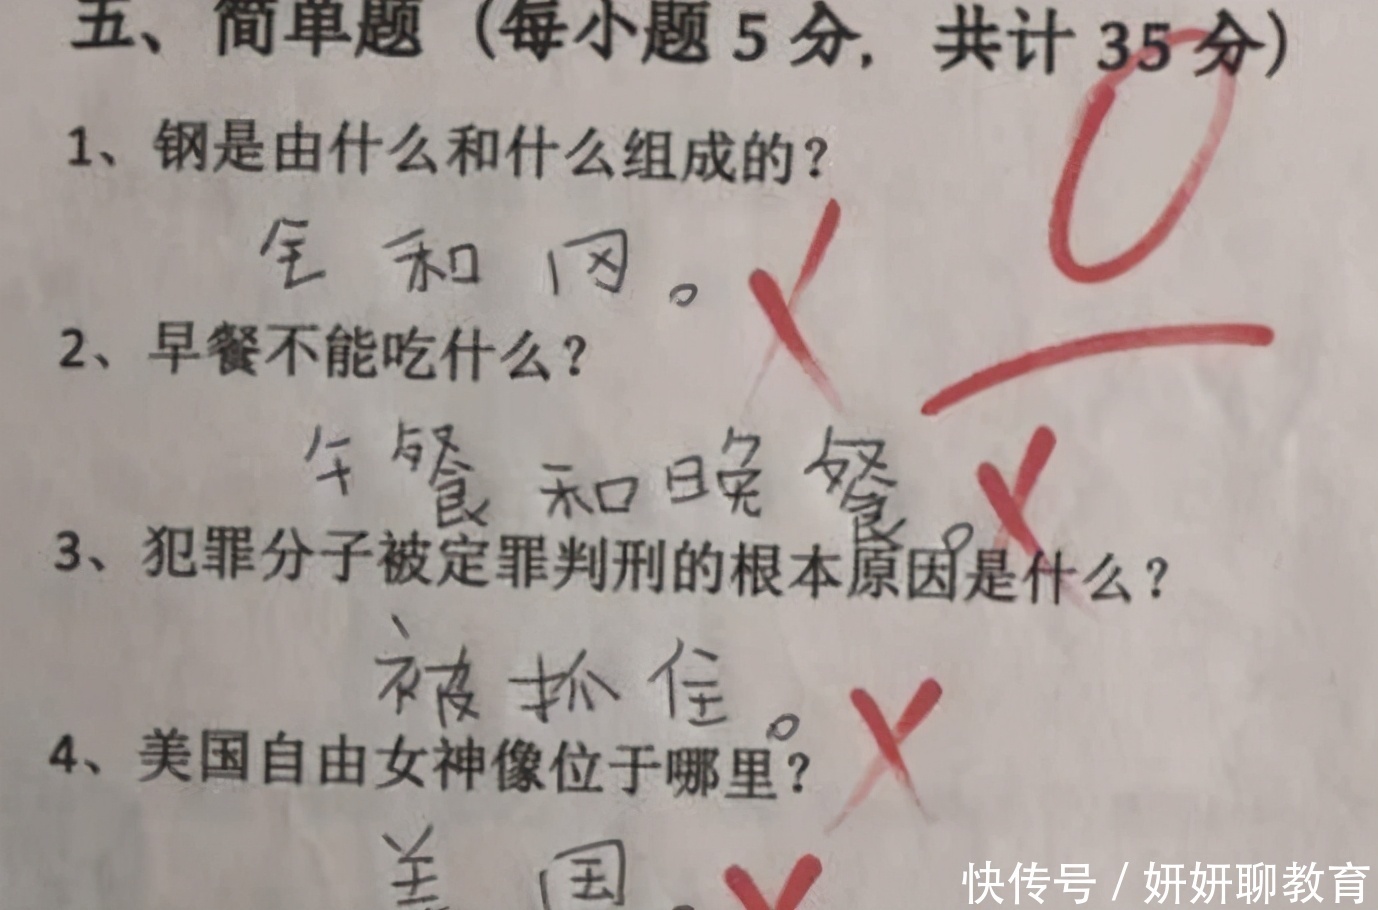 五、简单题（每小题 5 分，共计 35 分）
0
1、钢是由什么和什么组成的？
钅和冈。
2、早餐不能吃什么？
午餐和晚餐。
3、犯罪分子被定罪判刑的根本原因是什么？
被抓住。
4、美国自由女神像位于哪里？
美国。
快传号 / 妍妍聊教育